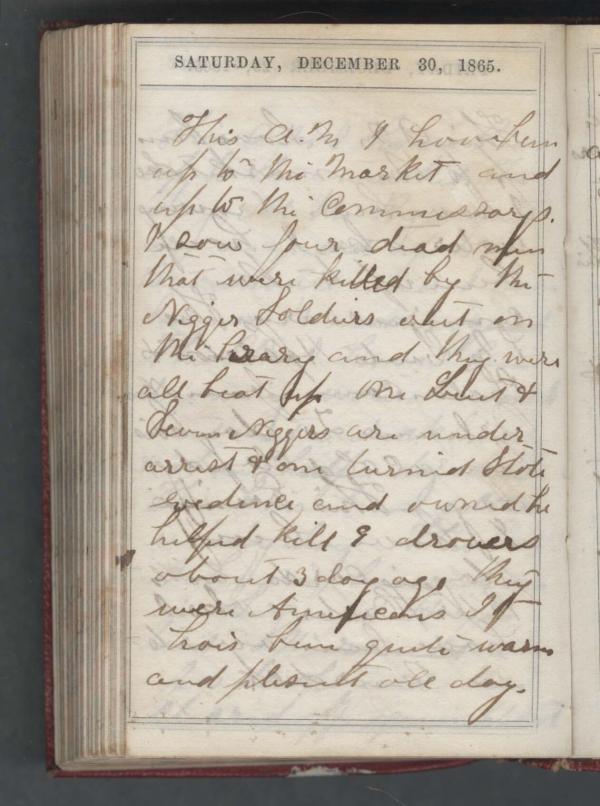 SATURDAY, DECEMBER 30, 1865.
This A.M I have ben
up to the Market and
up to the Commissarys.
I saw four dead men
that were killed by the
Nigger Soldiers out on
the and they were
all beat up One Lieut &
Seven Niggers are under
arrest & one turned State
evidence and owned he
helped kill 9 drovers
about 3 day ago They
were Americans It
hais bin quite warm
and plesent all day.